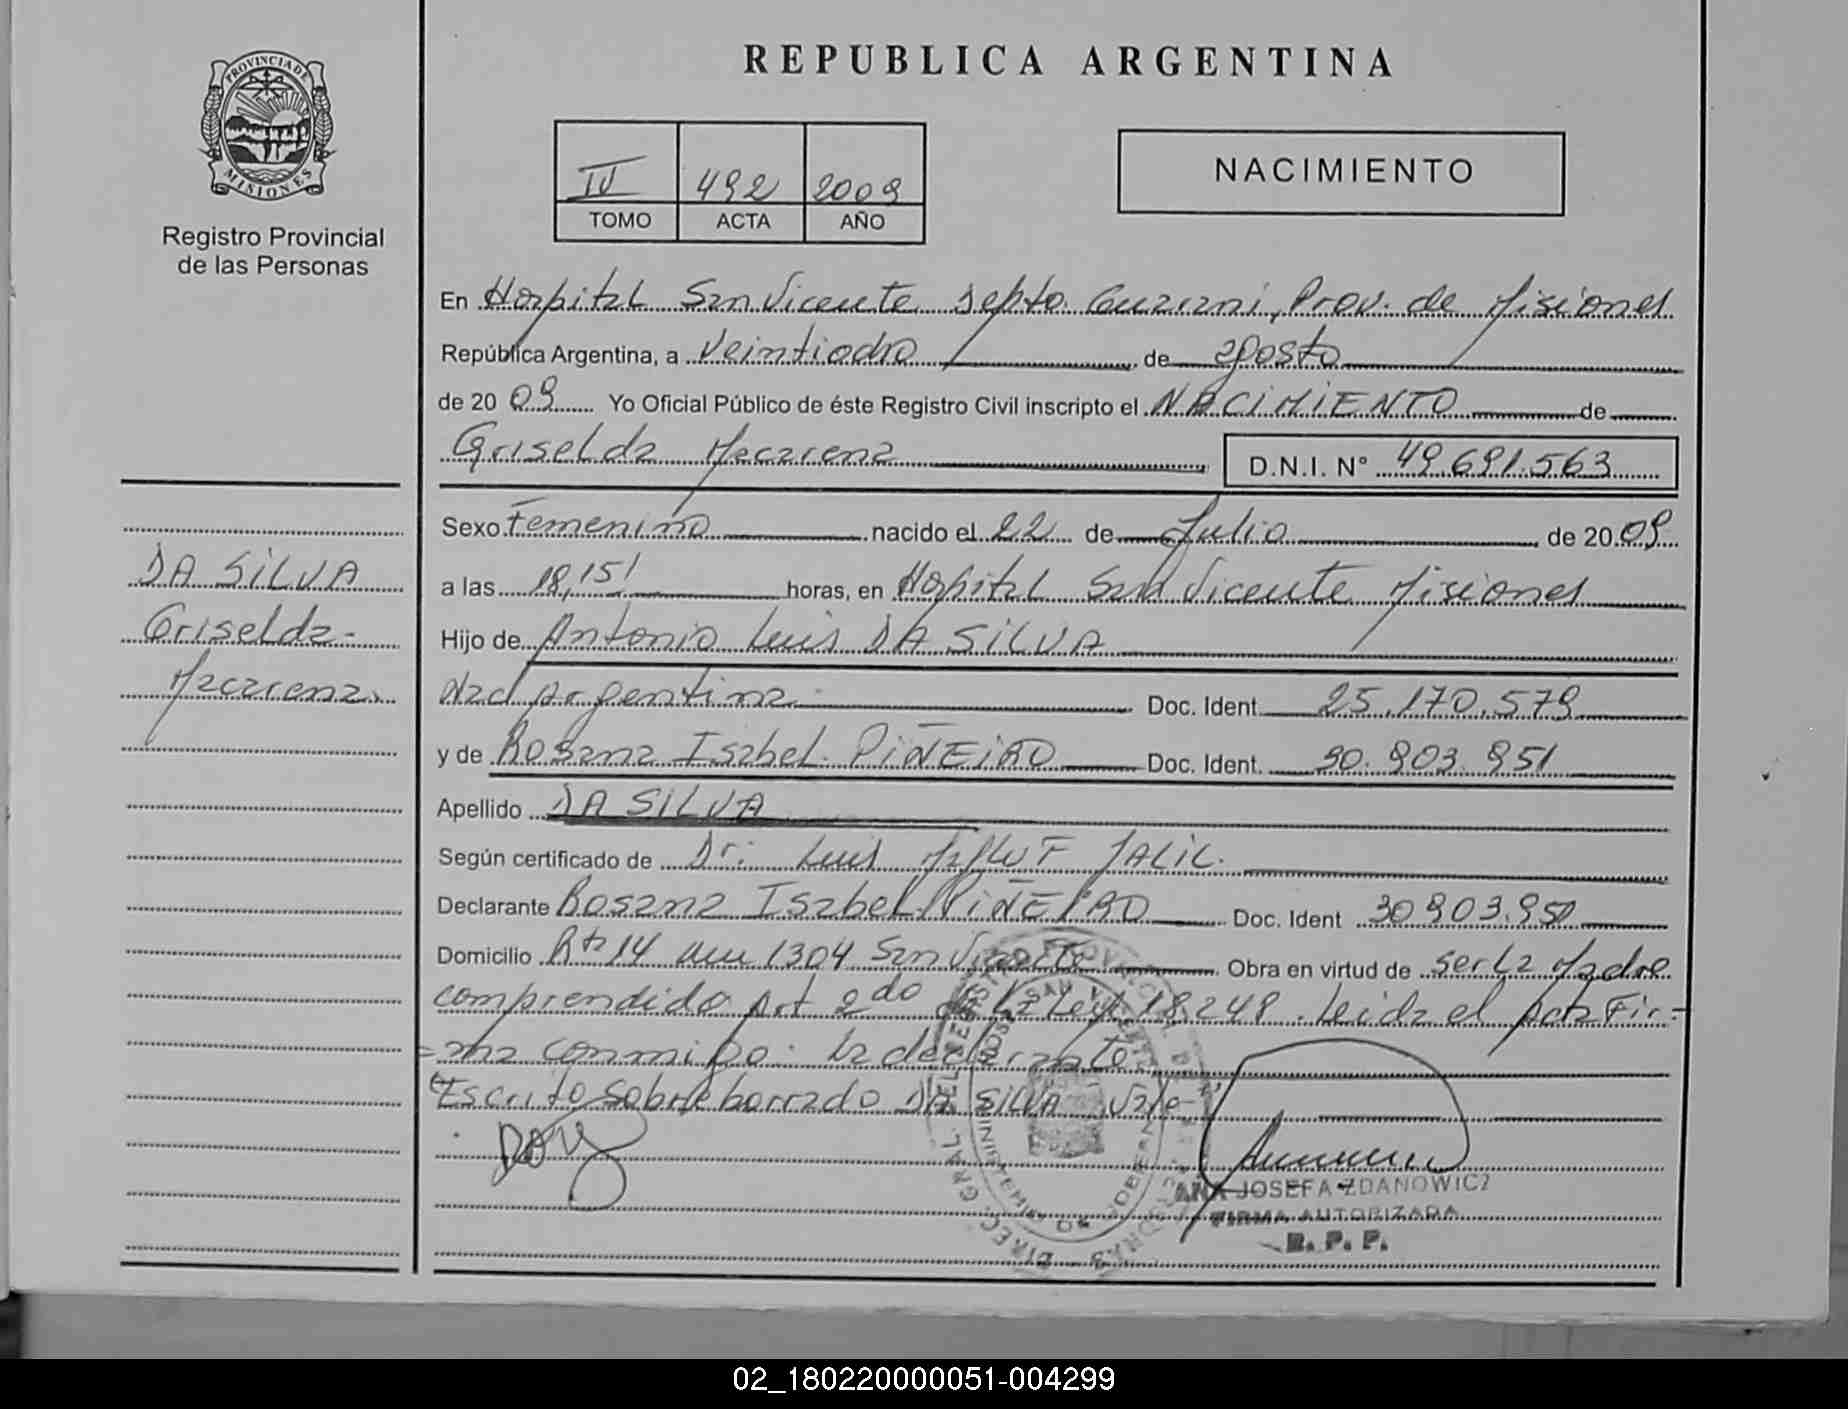 REPUBLICA ARGENTINA
PROVINCIA DE
MISIONES
Registro Provincial
de las Personas
IV 492 2009
TOMO ACTA AÑO
NACIMIENTO
En Hospital San Vicente Depto. Guarani, Prov. de Misiones
República Argentina, a Veintiocho de agosto
de 2009 Yo Oficial Público de éste Registro Civil inscripto el NACIMIENTO de
Griselda Macarena D.N.I. Nº 49.691.563
Sexo Femenino nacido el 22 de Julio de 2009
a las 18,15 horas, en Hospital San Vicente Misiones
Hijo de Antonio Luis DA SILVA
Nac. Argentina Doc. Ident. 25.170.579
y de Rosana Isabel PIÑEIRO Doc. Ident. 30.903.951
Apellido DA SILVA
Según certificado de Dr. Luis JALIL.
Declarante Rosana Isabel PIÑEIRO Doc. Ident 30903.951
Domicilio Rta 14 km 1304 San Vicente Obra en virtud de ser la Madre
comprendido Art 2do de la Ley 18.248. Leida el Acta Fir=
=ma conmigo la declarante
"Escrito sobre borrado DA SILVA Vale"
DA SILVA
Griselda
Macarena
ANA JOSEFA ZDANOWICZ
FIRMA AUTORIZADA
R. P. P.
02_180220000051-004299